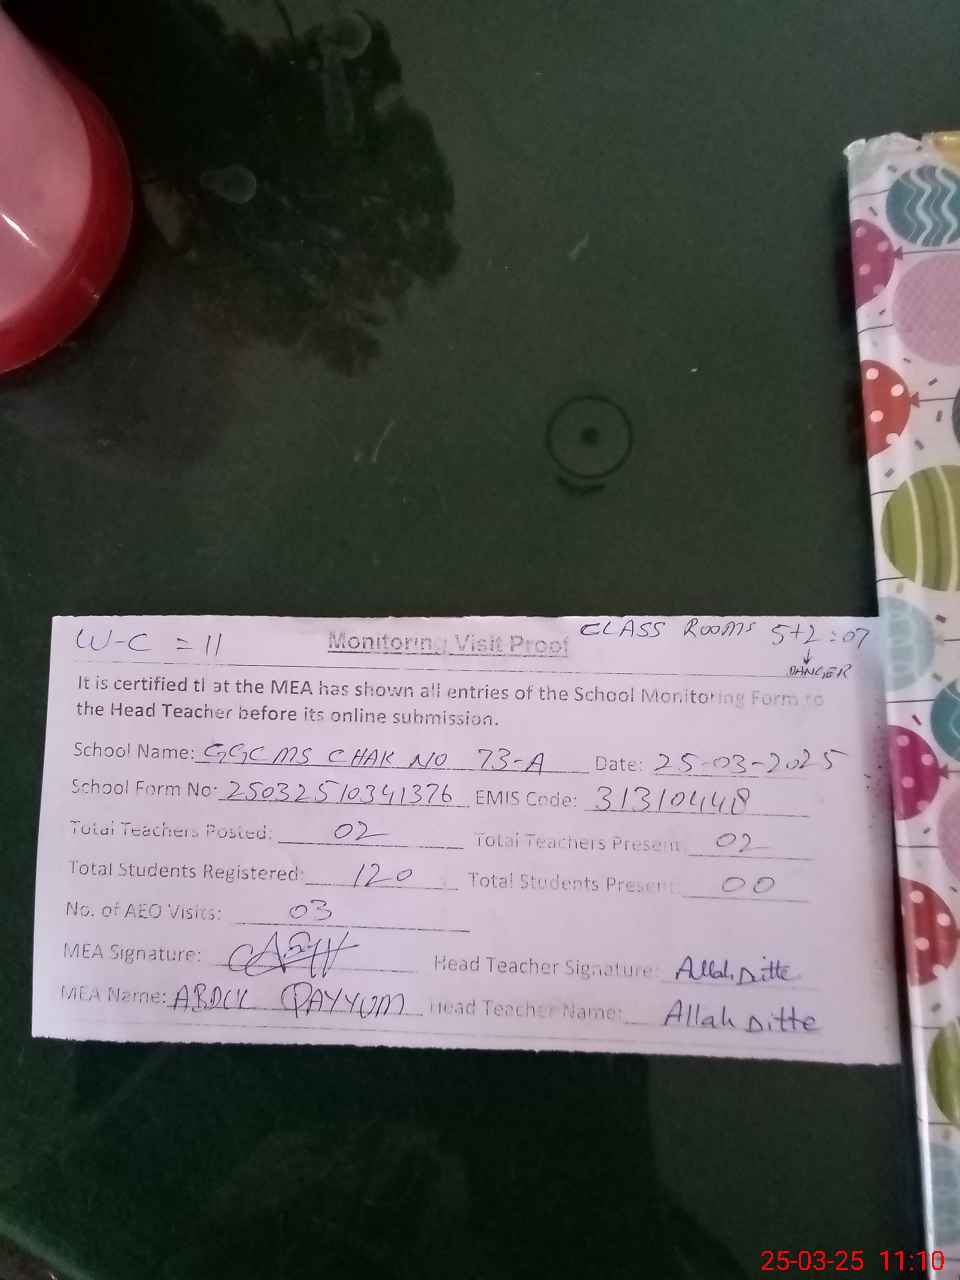 W-C = 11 Monitoring Visit Proof CLASS ROOMS 5+2:07
↓
DANGER
It is certified that the MEA has shown all entries of the School Monitoring Form to
the Head Teacher before its online submission.
School Name: GGCMS CHAK NO 73-A Date: 25-03-2025
School Form No: 25032510341376 EMIS Code:
Total Teachers Posted: 02 Total Teachers Present: 02
Total Students Registered: 120 Total Students Present: 00
No. of AEO Visits: 03
MEA Signature: Head Teacher Signature: Allah Ditte
MEA Name: ABDUL QAYYUM Head Teacher Name: Allah Ditte
25-03-25 11:10